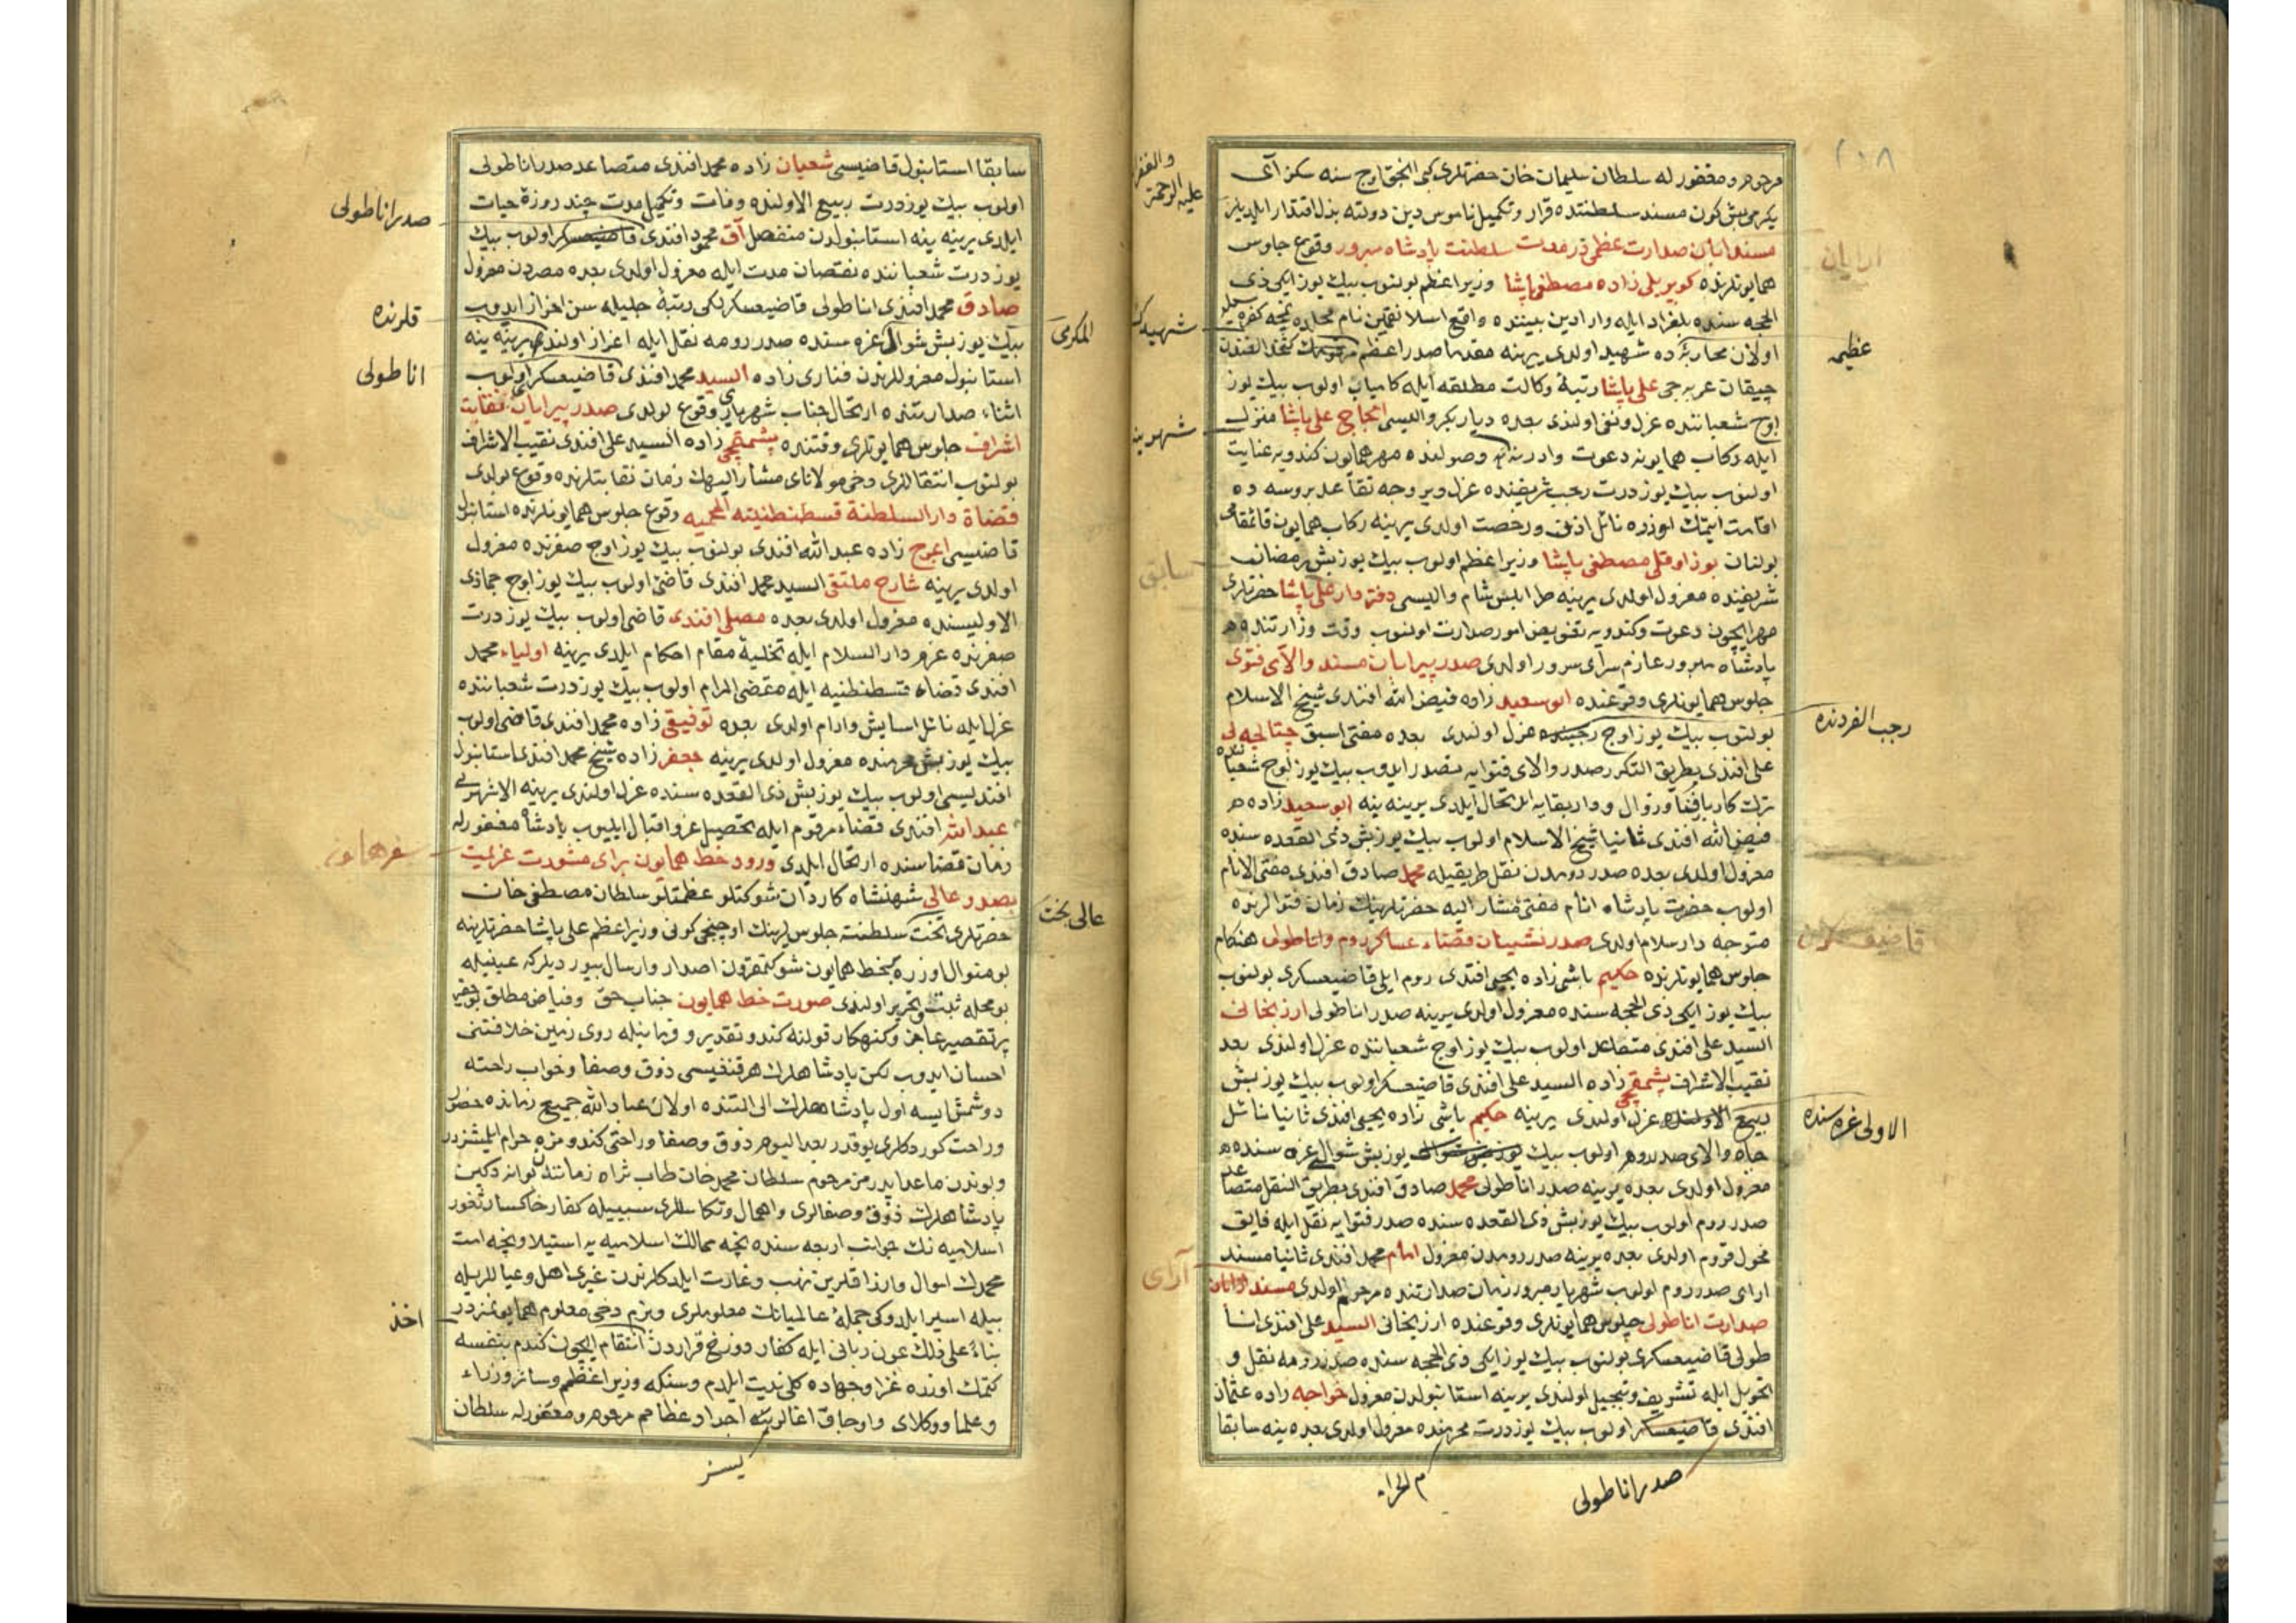 ٢١٨
مرحوم و مغفور له سلطان سلیمان خان حضرتلری کبی انجق اوچ سنه سکز آی
یکرمی بش کون مسند سلطنتده قرار و تکمیل ناموس دین دولته بذل اقتدار ایلدیلر
مسند آرایان صدارت عظمی در مدت سلطنت پادشاه مبرور وقوع جلوس
همایونلرنده کوپریلی زاده مصطفی پاشا وزیر اعظم بولنوب بیك یوز ایکی ذی
الحجه سنده بلغراد ایله وارادین بیننده واقع اسلانقمین نام محلده نیجه کفره یله
اولان محاربه ده شهید اولدی یرینه مقدما صدر اعظم کتخدالغندن
چیقان عربه جی علی پاشا رتبهٔ وکالت مطلقه ایله کامیاب اولوب بیك یوز
اوچ شعباننده عزل و نفی اولندی بعده دیاربکر والیسی الحاج علی پاشا منزل
ایله رکاب همایونه دعوت وادرنه یه وصولنده مهر همایون کندویه عنایت
اولنوب بیك یوز درت رجب شریفنده عزل و بر وجه تقاعد بروسه ده
اقامت ایتمك اوزره نائل اذن و رخصت اولدی یرینه رکاب همایون قائمقامی
بولنان بوزاوقلی مصطفی پاشا وزیر اعظم اولوب بیك یوز بش رمضان
شریفنده معزول اولدی یرینه طرابلس شام والیسی دفتردار علی پاشا حضرتلری
مهر ایچون دعوت و کندویه تفویض امور صدارت اولنوب وقت وزارتنده
پادشاه مبرور عازم سرای سرور اولدی صدر پیرایان مسند والای فتوی
جلوس همایونلری وقوعنده ابو سعید زاده فیض الله افندی شیخ الاسلام
بولنوب بیك یوز اوچ عزل اولندی بعده مفتی اسبق چتالجه لی
علی افندی بطریق التکرر صدر والای فتوایه تصدر ایدوب بیك یوز اوچ شعباننده
ترك کار و دار بقایه ارتحال ایلدی یرینه ینه ابو سعید زاده
فیض الله افندی ثانیا شیخ الاسلام اولوب بیك یوز بش ذی القعده سنده
معزول اولدی بعده صدر رومدن نقل طریقیله محمد صادق افندی مفتی الانام
اولوب حضرت پادشاه انام مفتی مشار الیه حضرتلرینك زمان فتوالرنده
متوجه دار سلام اولدی صدر نشینان قضاء عساکر روم واناطولی هنکام
جلوس همایونلرنده حکیم باشی زاده یحیی افندی روم ایلی قاضیعسکری بولنوب
بیك یوز ایکی ذی الحجه سنده معزول اولدی یرینه صدر اناطولی ارزنجانی
السید علی افندی متصاعد اولوب بیك یوز اوچ شعباننده عزل اولندی بعد
نقیب الاشراف پشمقجی زاده السید علی افندی قاضیعسکر اولوب بیك یوز بش
ربیع عزل اولندی یرینه حکیم باشی زاده یحیی افندی ثانیا نائل
جاه والای صدر روم اولوب بیك یوز بش شوالی غره سنده
معزول اولدی بعده یرینه صدر اناطولی محمد صادق افندی بطریق النقل متصاعد
صدر روم اولوب بیك یوز بش ذی القعده سنده صدر فتوایه نقل ایله فایق
فحول قروم اولدی بعده یرینه صدر رومدن معزول امام محمد افندی ثانیا مسند
ارای صدر روم اولوب شهریار مبرور زمان صدارتنده مرحوم اولدی مسند ارایان
صدارت اناطولی جلوس همایونلری وقوعنده ارزنجانی السید علی افندی انا
طولی قاضیعسکری بولنوب بیك یوز ایکی ذی الحجه سنده صدر رومه نقل و
تحویل ایله تشریف و تبجیل اولندی یرینه استانبولدن معزول خواجه زاده عثمان
افندی قاضیعسکر اولوب بیك یوز درت محرمنده معزول اولدی بعده ینه سابقا
والغفران
علیه الرحمة
ارایان
عظیمه
شهید
سابق
رجب الفردنده
الاولی غره سنده
آرای
صدر اناطولی
م الحرام
سابقا استانبول قاضیسی شعبان زاده محمد افندی متصاعد صدر اناطولی
اولوب بیك یوز درت ربیع الاولنده وفات و تکمیل مدت چند روزهٔ حیات
ایلدی یرینه ینه استانبولدن منفصل آق محمود افندی قاضیعسکر اولوب بیك
یوز درت شعباننده نقصان مدت ایله معزول اولدی بعده مصردن معزول
صادق محمد افندی اناطولی قاضیعسکرلکی رتبهٔ جلیله سن احراز ایدوب
بیك یوز بش شوال غره سنده صدر رومه نقل ایله اعزاز اولندی یرینه ینه
استانبول معزوللرندن فناری زاده السید محمد افندی قاضیعسکر اولوب
اثناء صدارتنده ارتحال جناب شهریاری وقوع بولدی صدر پیرایان نقابت
اشراف جلوس همایونلری وقتنده پشمقجی زاده السید علی افندی نقیب الاشراف
بولنوب انتقاللری دخی مولانای مشار الیهك زمان نقابتلرنده وقوع بولدی
قضاة دار السلطنة قسطنطنیة المحمیه وقوع جلوس همایونلرنده استانبول
قاضیسی اعوج زاده عبد الله افندی بولنوب بیك یوز اوچ صفرنده معزول
اولدی یرینه شارح ملتقی السید محمد افندی قاضی اولوب بیك یوز اوچ جمادی
الاولیسنده معزول اولدی بعده مصلی افندی قاضی اولوب بیك یوز درت
صفرنده عزم دار السلام ایله تخلیهٔ مقام احکام ایلدی یرینه اولیاء محمد
افندی قضاء قسطنطنیه ایله مقضی المرام اولوب بیك یوز درت شعباننده
عزل ایله نائل اسایش وارام اولدی بعده توفیقی زاده محمد افندی قاضی اولوب
بیك یوز بش محرمنده معزول اولدی یرینه جعفر زاده شیخ محمد افندی استانبول
افندیسی اولوب بیك یوز بش ذی القعده سنده عزل اولندی یرینه
عبد الله افندی قضاء مرقوم ایله تحصیل عز و اقبال ایلیوب پادشاه مغفور له
زمان قضاسنده ارتحال ایلدی ورود خط همایون برای مشورت عزیمت
بصدر عالی شهنشاه کاردان شوکتلو عظمتلو سلطان مصطفی خان
حضرتلری تخت سلطنته جلوسلرینك اوچنجی کونی وزیر اعظم علی پاشا حضرتلرینه
بو منوال اوزره خط همایون شوکتمقرون اصدار وارسال بیوردیلر که عینیله
بو محله ثبت و تحریر اولندی صورت خط همایون جناب حق و فیاض مطلق
پر تقصیر عاجز و کنهکار قولنه کندو تقدیر روی زمین خلافتنی
احسان ایدوب لکن پادشاهلرك هر قنغیسی ذوق و صفا و خواب راحته
دوشمش ایسه اول پادشاهلرك الی التنده اولان عباد الله جمیع زمانده حضور
و راحت کوردکلری یوقدر بعد الیوم ذوق و صفا و راحتی کندومزه حرام ایلمشزدر
و بوندن ماعدا پدرمز مرحوم سلطان محمد خان طاب ثراه زمانندن
پادشاهلرك ذوق و صفالری و اهمال و تکاسللری سببیله کفار خاکسار ثغور
اسلامیه نك جوانب اربعه سنده نیجه ممالك اسلامیه یه استیلا و نیجه امت
محمدك اموال وارزاقلرین نهب و غارت ایلدکلرندن غیری اهل و عیاللریله
بیله اسیر ایلدوکی جملهٔ عالمیانك معلوملری و بزم دخی معلوم همایونمزدر
بناءً علی ذلك عون ربانی ایله کفار دوزخ قراردن انتقام ایچون کندم بنفسه
کتمك اوزره غزا و جهاده کلی نیت ایلدم و سنکه وزیر اعظم و سائر وزراء
و علما و وکلای واوجاق اغالری اجداد عظامم مرحوم و مغفور له سلطان
صدر اناطولی
قلرنده
اناطولی
المکرمی
عالی بخت
اخذ